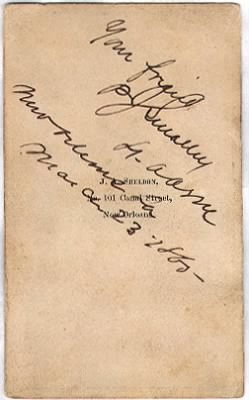 Your friend
P J Smalley
New Orleans La
March 23 - 1865 -
SHELDON,
No. 101 Canal Street,
New Orleans.